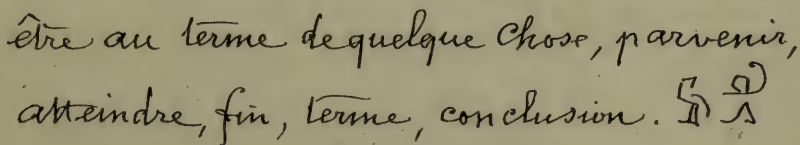 être au terme de quelque chose, parvenir,
atteindre, fin, terme, conclusion.